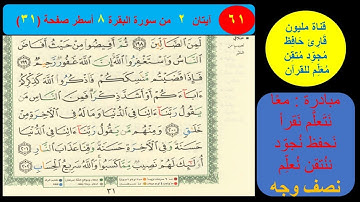 ٦١
آيتان ٢ من سورة البقرة ٨ أسطر صفحة (٣١)
لَمِنَ ٱلضَّآلِّينَ ١٩٨ ثُمَّ أَفِيضُوا۟ مِنْ حَيْثُ أَفَاضَ
ٱلنَّاسُ وَٱسْتَغْفِرُوا۟ ٱللَّهَ إِنَّ ٱللَّهَ غَفُورٌ رَّحِيمٌ ١٩٩
فَإِذَا قَضَيْتُم مَّنَٰسِكَكُمْ فَٱذْكُرُوا۟ ٱللَّهَ كَذِكْرِكُمْ
ءَابَآءَكُمْ أَوْ أَشَدَّ ذِكْرًا فَمِنَ ٱلنَّاسِ مَن
يَقُولُ رَبَّنَآ ءَاتِنَا فِى ٱلدُّنْيَا وَمَا لَهُۥ فِى ٱلْءَاخِرَةِ مِنْ
خَلَٰقٍ ٢٠٠ وَمِنْهُم مَّن يَقُولُ رَبَّنَآ ءَاتِنَا فِى ٱلدُّنْيَا
حَسَنَةً وَفِى ٱلْءَاخِرَةِ حَسَنَةً وَقِنَا عَذَابَ ٱلنَّارِ ٢٠١
أُو۟لَٰٓئِكَ لَهُمْ نَصِيبٌ مِّمَّا كَسَبُوا۟ وَٱللَّهُ سَرِيعُ ٱلْحِسَابِ ٢٠٢
٣١
قناة مليون
قارئ حافظ
مُجوّد مُتقن
مُعلّم للقرآن
مبادرة : معًا
نَتعلّم نَقرأ
نَحفظ نُجوّد
نُتْقن نُعلّم
نصف وجه